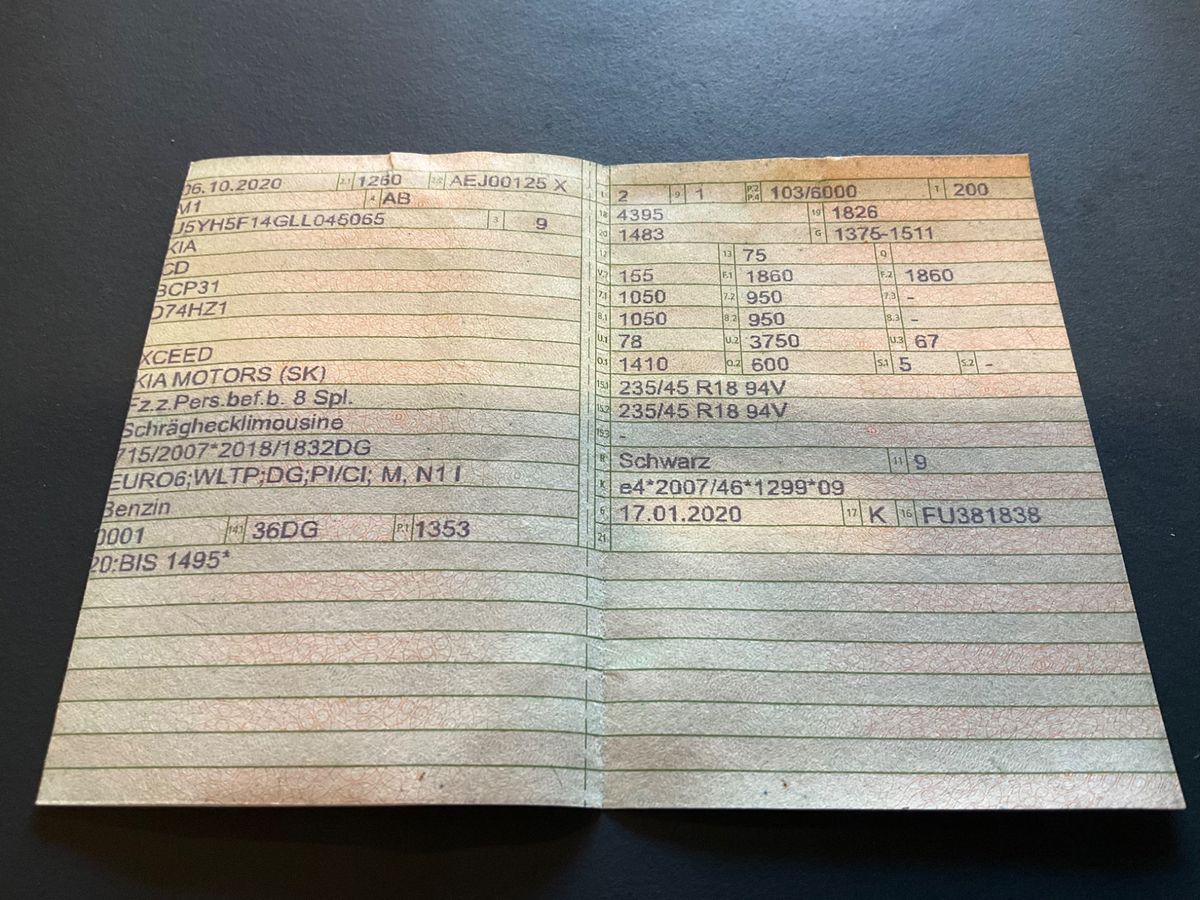 06.10.2020 2.1 1260 2.2 AEJ00125 X
M1 4 AB
U5YH5F14GLL045065 3 9
KIA
CD
BCP31
D74HZ1
XCEED
KIA MOTORS (SK)
Fz.z.Pers.bef.b. 8 Spl.
Schräghecklimousine
715/2007*2018/1832DG
EURO6;WLTP;DG;PI/CI; M, N1 I
Benzin
0001 14.1 36DG P.1 1353
20:BIS 1495*
L 2 9 1 P.2 P.4 103/6000 T 200
18 4395 19 1826
20 1483 G 1375-1511
12 13 75 Q
V.7 155 F.1 1860 F.2 1860
7.1 1050 7.2 950 7.3 -
8.1 1050 8.2 950 8.3 -
U.1 78 U.2 3750 U.3 67
O.1 1410 O.2 600 S.1 5 S.2 -
15.1 235/45 R18 94V
15.2 235/45 R18 94V
15.3 -
R Schwarz 11 9
K e4*2007/46*1299*09
6 17.01.2020 17 K 16 FU381838
21